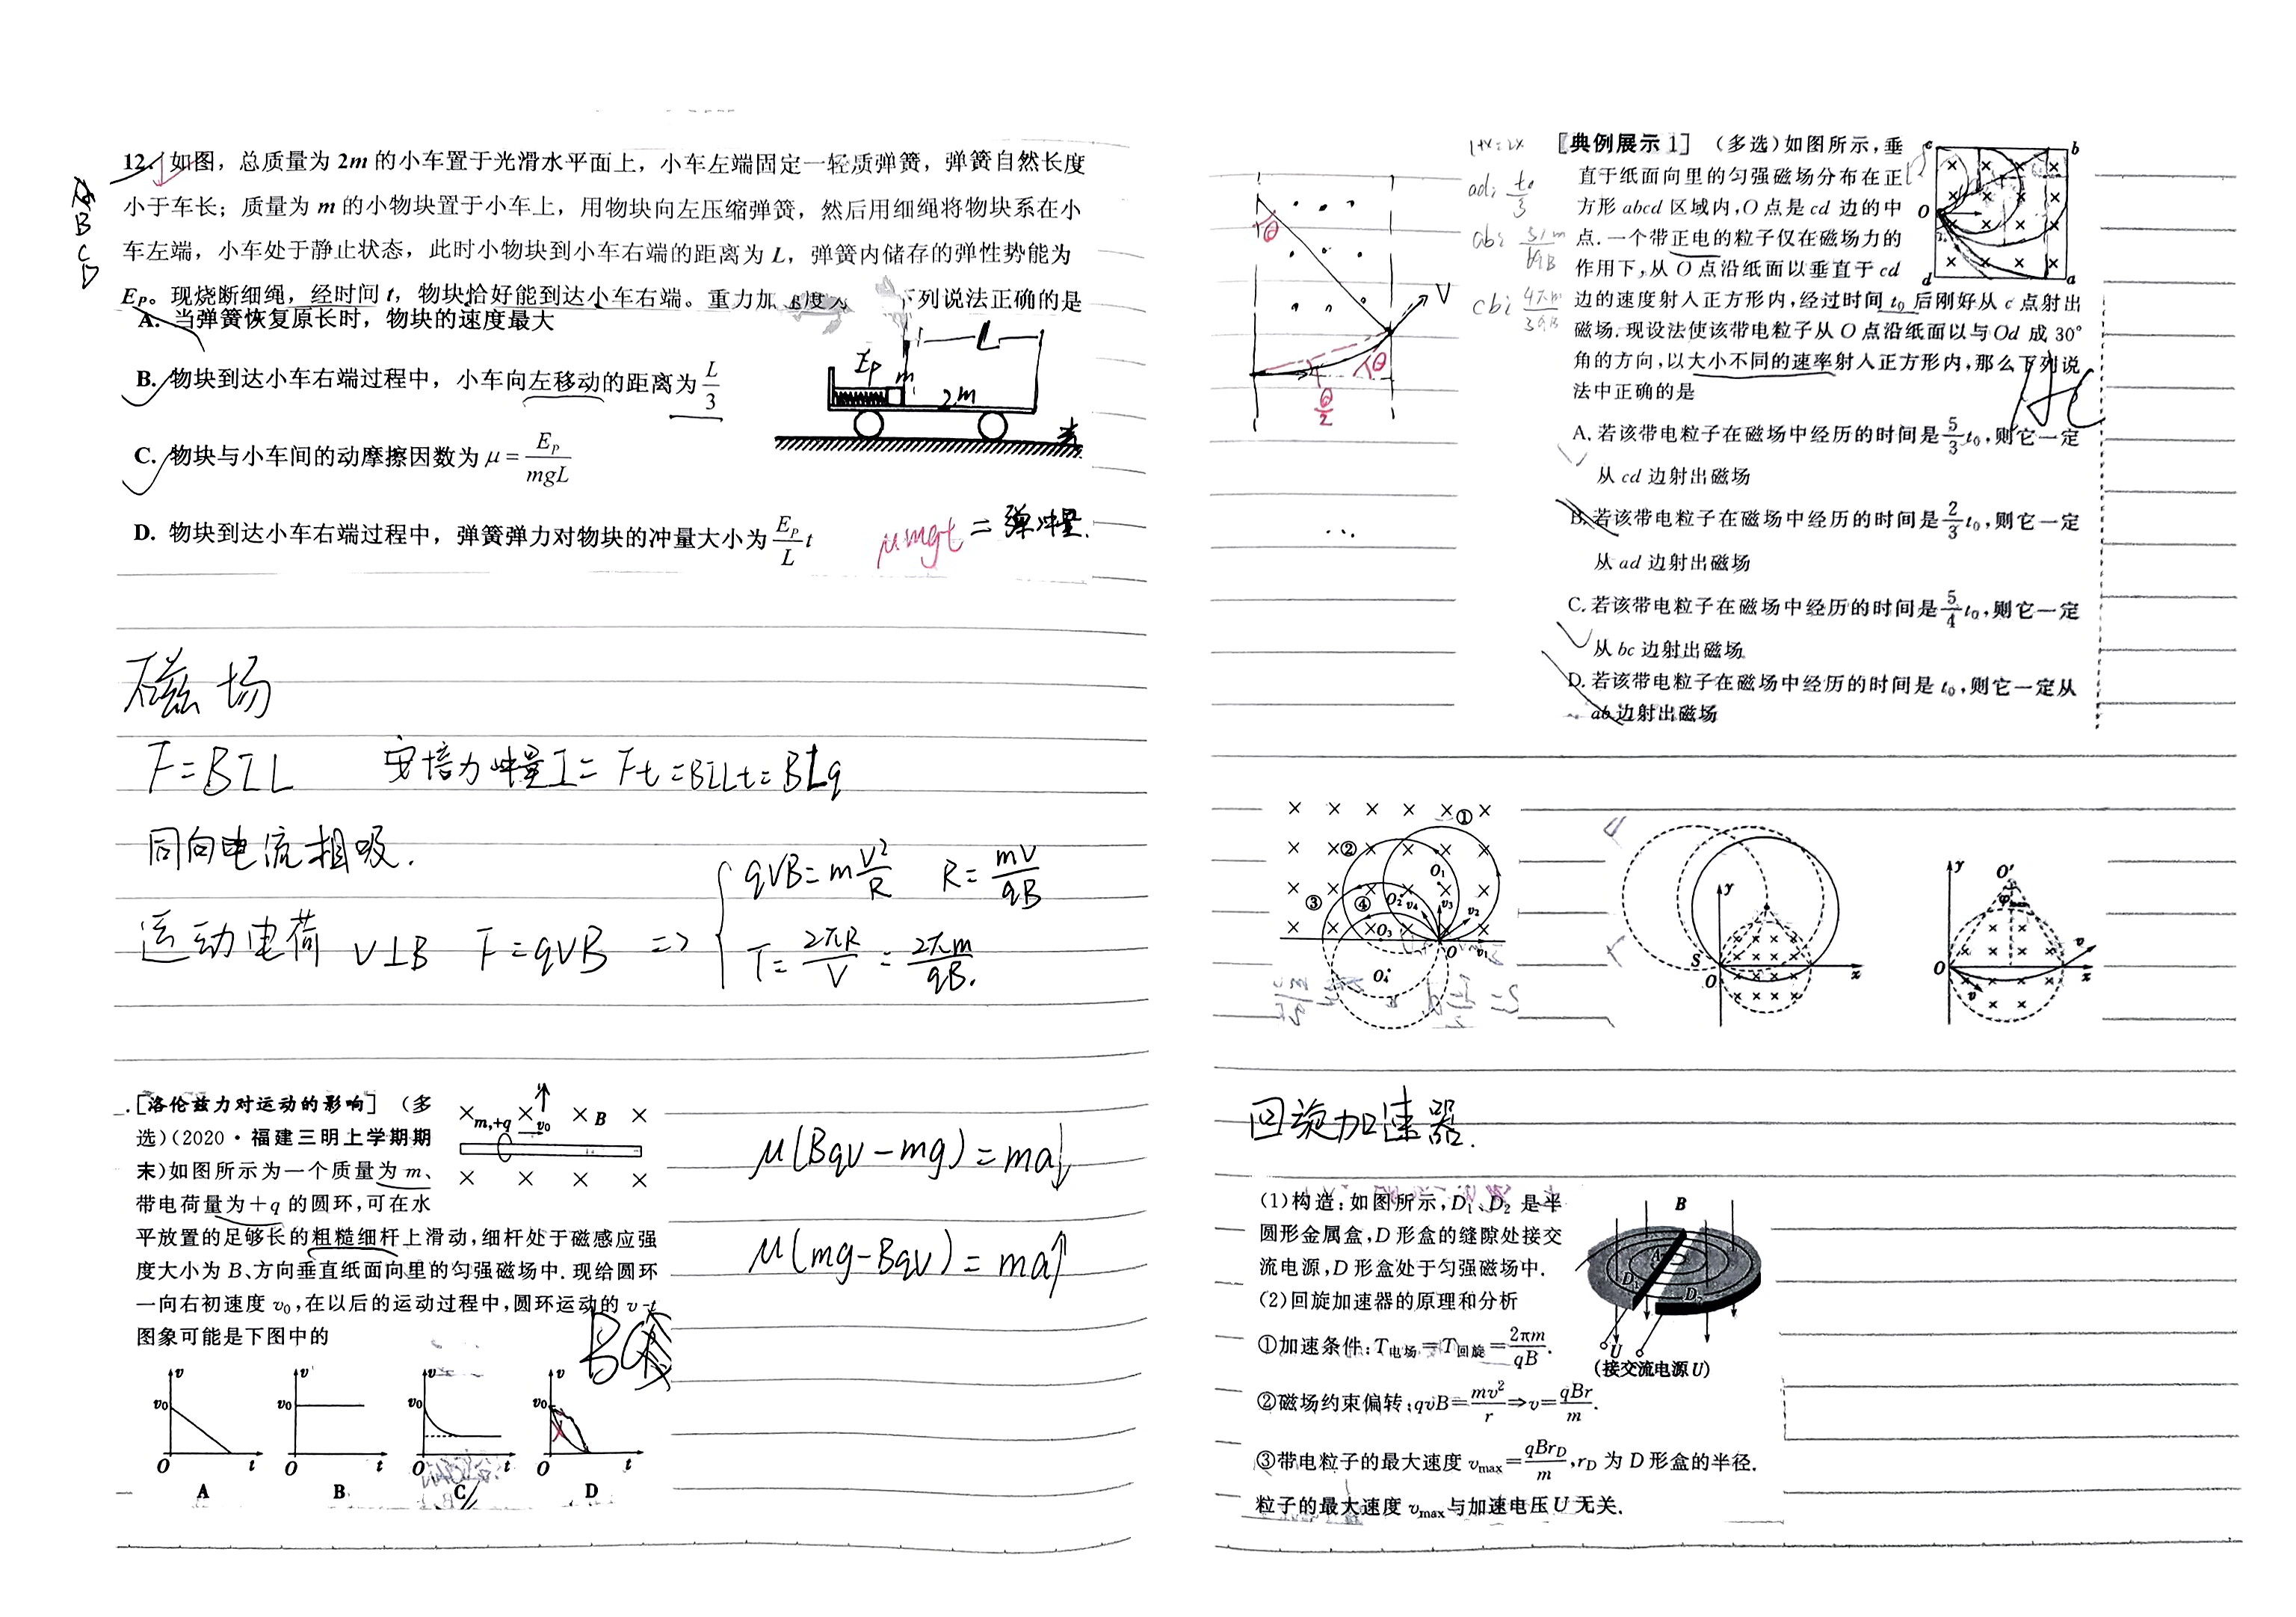 12. 如图，总质量为 2m 的小车置于光滑水平面上，小车左端固定一轻质弹簧，弹簧自然长度
小于车长；质量为 m 的小物块置于小车上，用物块向左压缩弹簧，然后用细绳将物块系在小
车左端，小车处于静止状态，此时小物块到小车右端的距离为 L，弹簧内储存的弹性势能为
E_P。现烧断细绳，经时间 t，物块恰好能到达小车右端。重力加 度 列说法正确的是
A
B
C
D
A. 当弹簧恢复原长时，物块的速度最大
B. 物块到达小车右端过程中，小车向左移动的距离为 L/3
C. 物块与小车间的动摩擦因数为 μ = E_P/mgL
D. 物块到达小车右端过程中，弹簧弹力对物块的冲量大小为 E_P/L t
μmgt = 弹冲量.
Ep m L
2m
磁场
F=BIL 安培力冲量I= Ft=BILt=BLq
同向电流相吸.
运动电荷 V⊥B F=qVB => qVB=m V²/R R= mV/qB
T= 2πR/V = 2πm/qB.
[洛伦兹力对运动的影响] (多
选)(2020·福建三明上学期期
末)如图所示为一个质量为 m、
带电荷量为+q 的圆环,可在水
平放置的足够长的粗糙细杆上滑动,细杆处于磁感应强
度大小为 B、方向垂直纸面向里的匀强磁场中. 现给圆环
一向右初速度 v₀,在以后的运动过程中,圆环运动的 v-t
图象可能是下图中的
m,+q v₀ B
μ(Bqv-mg)=ma↓
μ(mg-Bqv)=ma↑
BC
v v₀ O t A
v v₀ O t B
v v₀ O t C
v v₀ O t D
θ V
θ
θ/2
ad: t₀/3
ab: 
cb: 4πm/3qB
[典例展示 1] (多选)如图所示,垂
直于纸面向里的匀强磁场分布在正
方形 abcd 区域内,O 点是 cd 边的中
点. 一个带正电的粒子仅在磁场力的
作用下,从 O 点沿纸面以垂直于 cd
边的速度射入正方形内,经过时间 t₀ 后刚好从 c 点射出
磁场. 现设法使该带电粒子从 O 点沿纸面以与 Od 成 30°
角的方向,以大小不同的速率射入正方形内,那么下列说
法中正确的是
AC
c b
O
d a
A. 若该带电粒子在磁场中经历的时间是 5/3 t₀,则它一定
从 cd 边射出磁场
B. 若该带电粒子在磁场中经历的时间是 2/3 t₀,则它一定
从 ad 边射出磁场
C. 若该带电粒子在磁场中经历的时间是 5/4 t₀,则它一定
从 bc 边射出磁场
D. 若该带电粒子在磁场中经历的时间是 t₀,则它一定从
ab 边射出磁场
① ② ③ ④
O₁ O₂ O₃ O₄ v₄ v₃ v₂ v₁ O
y S O x
y O′ φ O v v x
回旋加速器.
(1)构造:如图所示,D₁、D₂ 是半
圆形金属盒,D 形盒的缝隙处接交
流电源,D 形盒处于匀强磁场中.
(2)回旋加速器的原理和分析
①加速条件:T电场=T回旋= 2πm/qB.
②磁场约束偏转:qvB= mv²/r ⇒v= qBr/m.
③带电粒子的最大速度 v_max= qBr_D/m,r_D 为 D 形盒的半径.
粒子的最大速度 v_max 与加速电压 U 无关.
B
A D₁ D₂
U
(接交流电源 U)